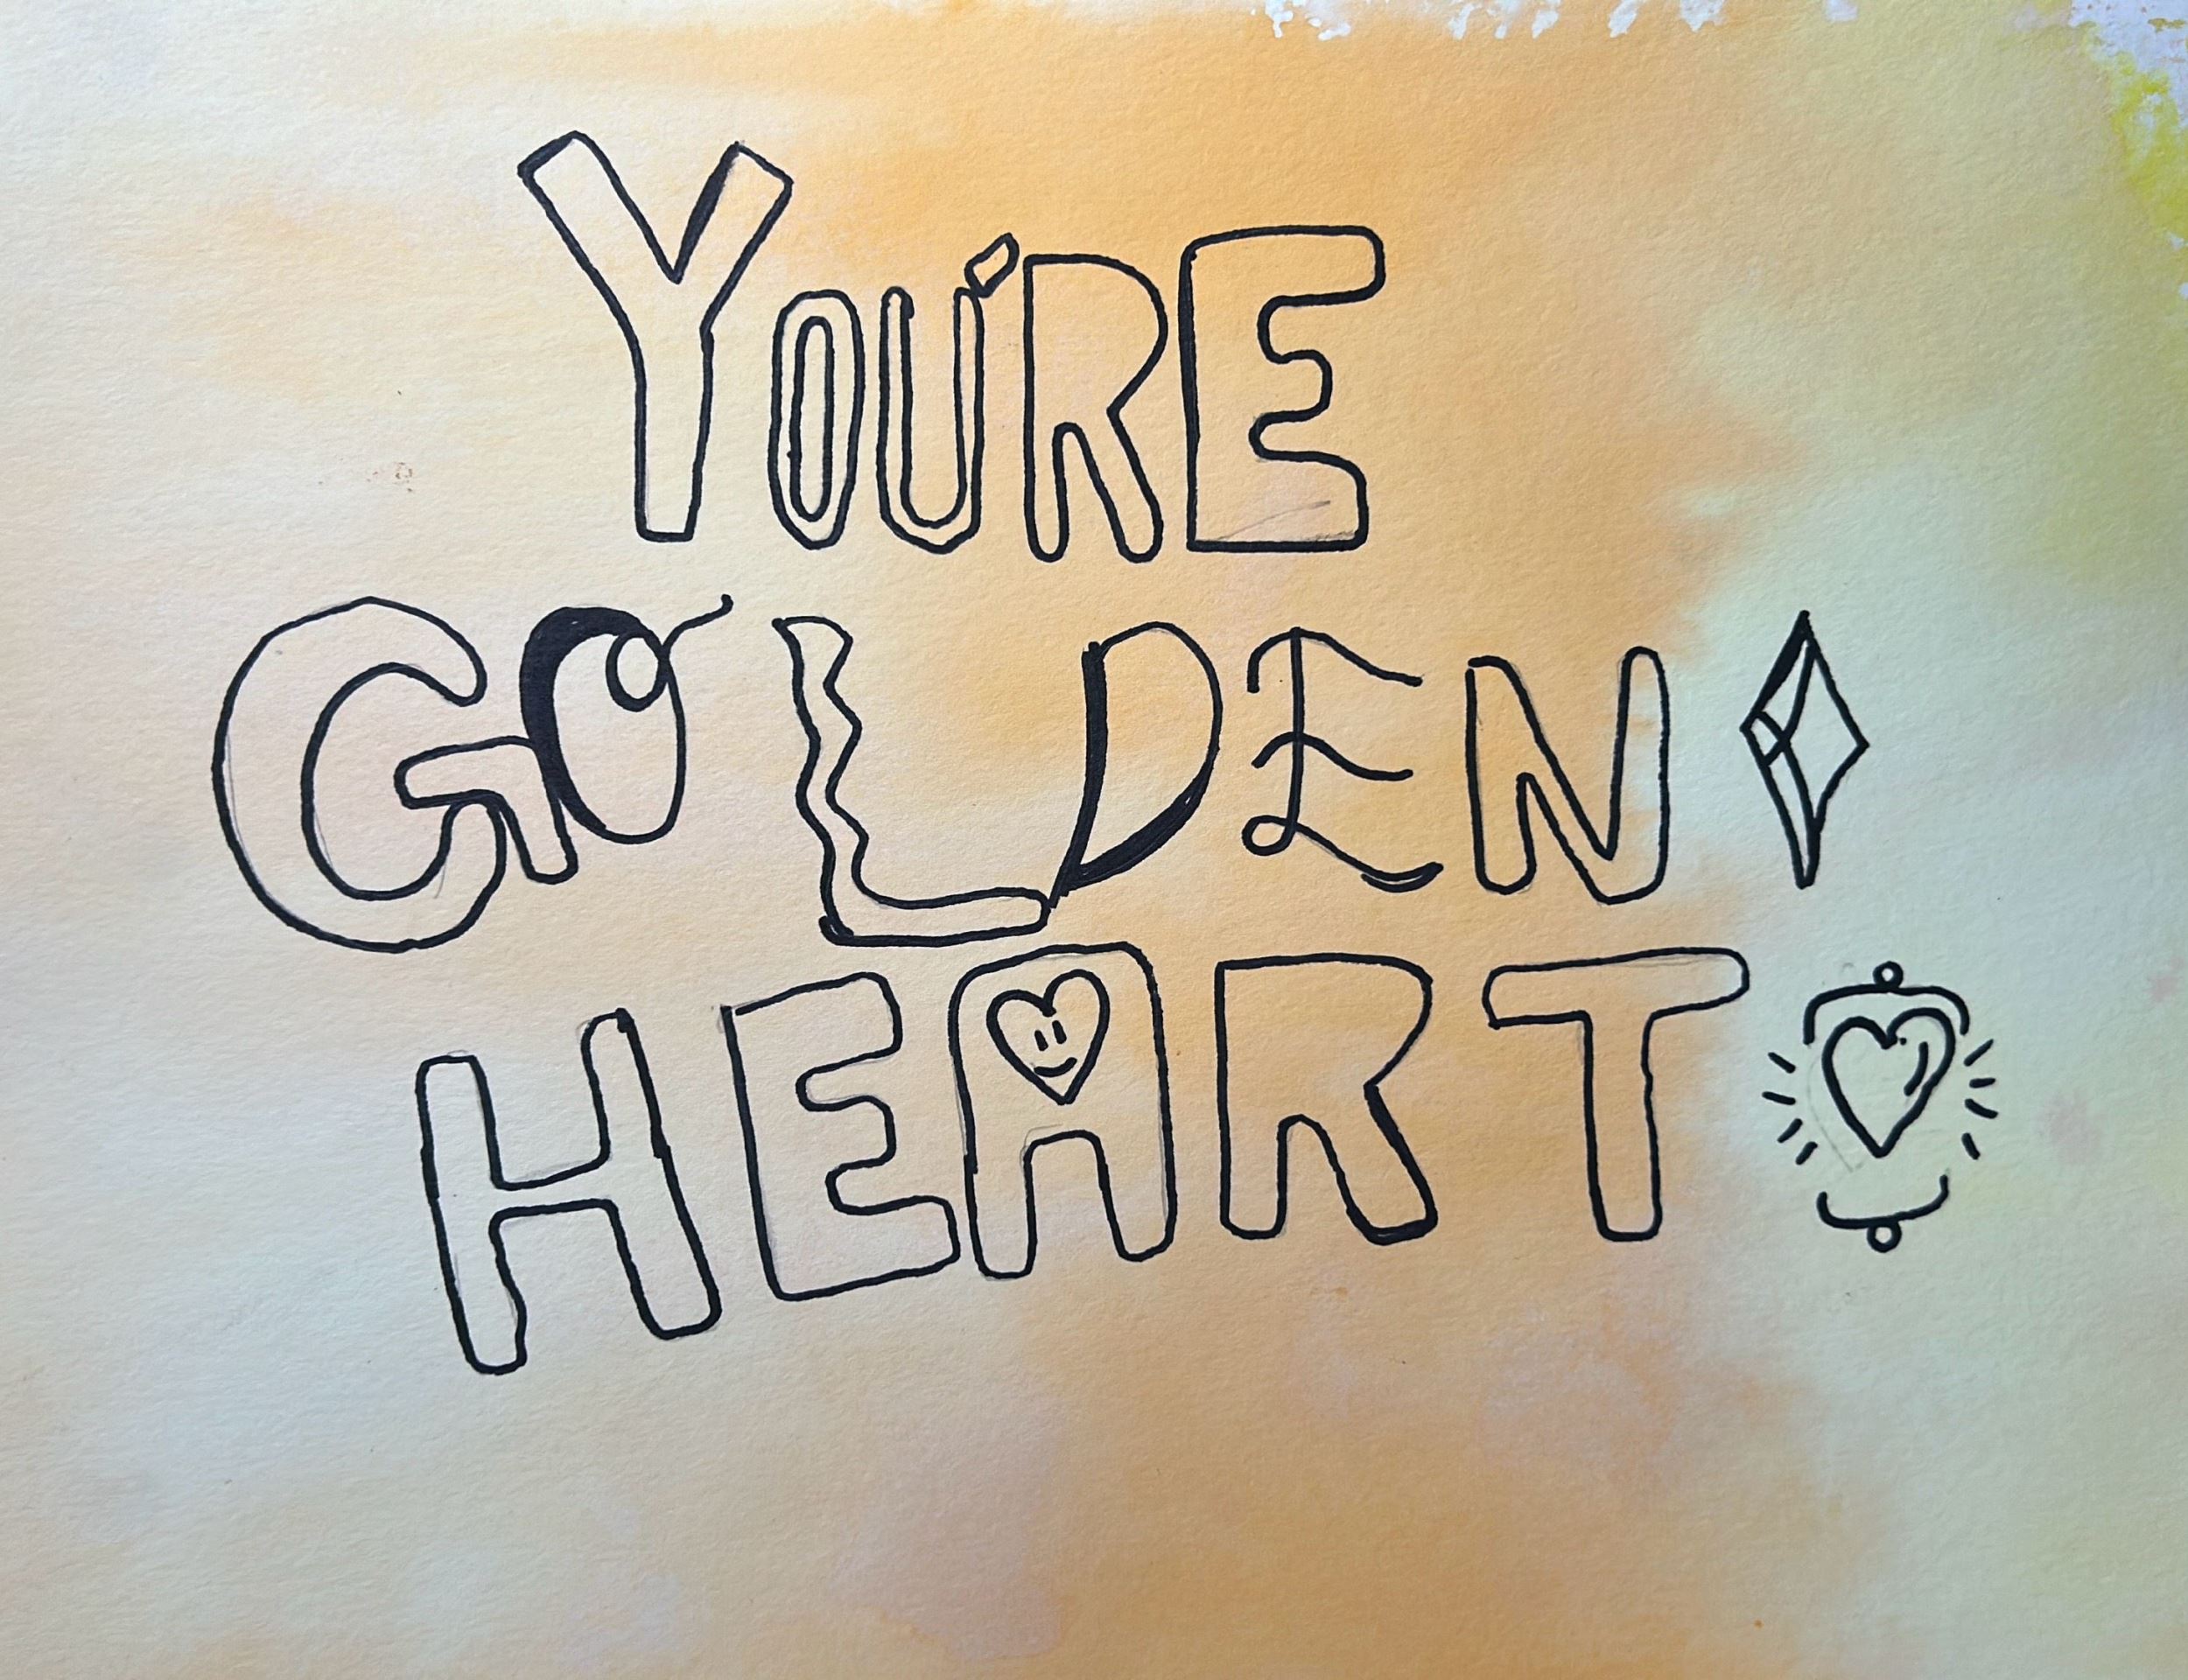 YOU'RE
GOLDEN
HEART